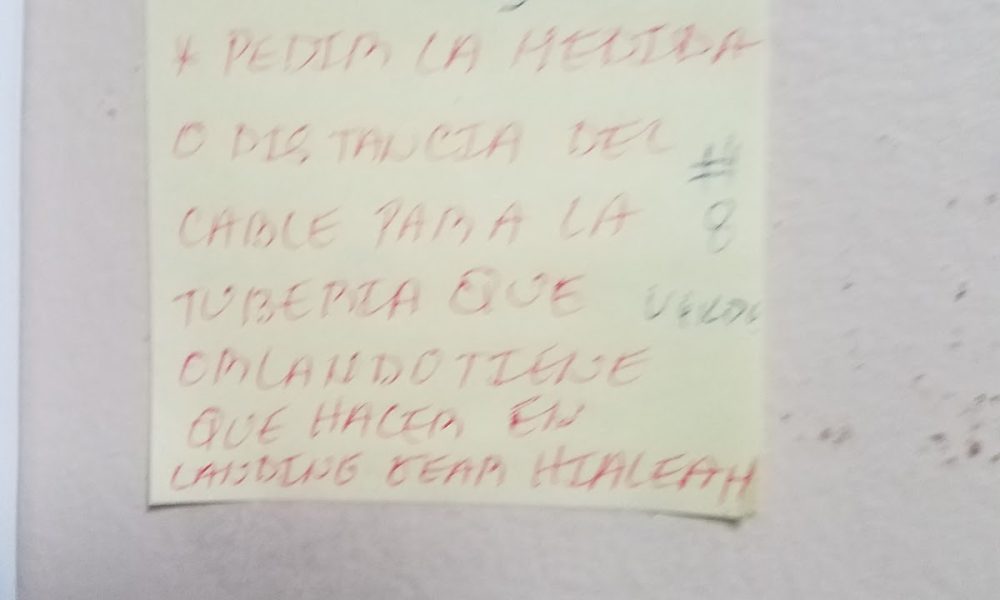 * PEDIR LA MEDIDA
O DISTANCIA DEL
#
CABLE PARA LA
8
TUBERIA QUE
VERDE
ORLANDO TIENE
QUE HACER EN
LANDING GEAR HIALEAH